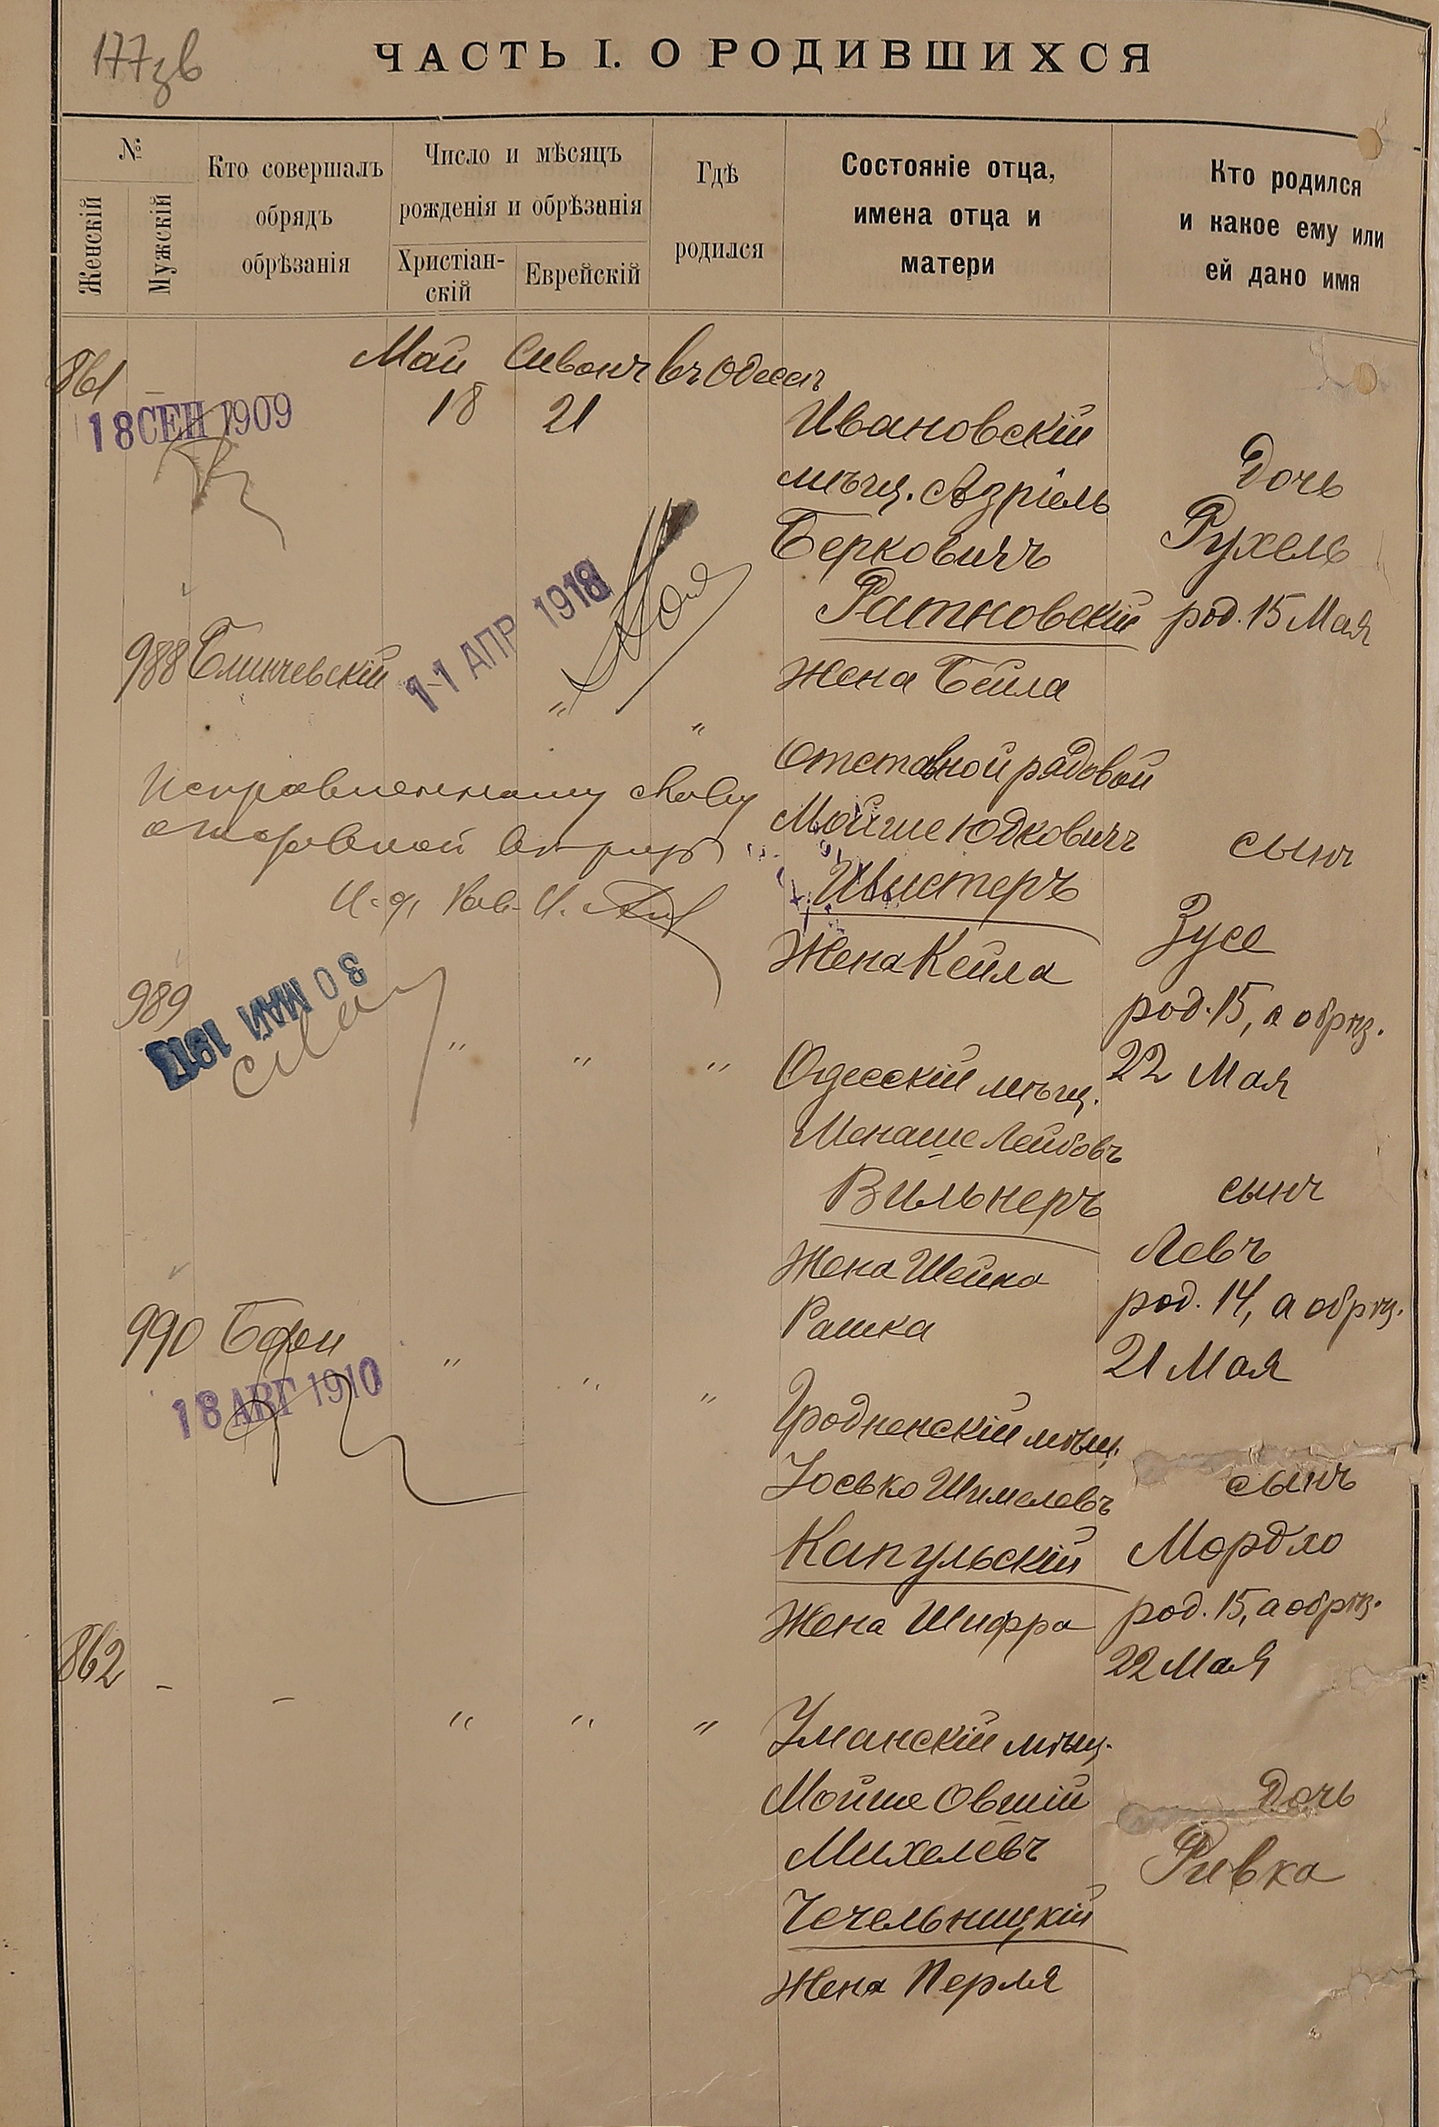 177 зв
ЧАСТЬ I. О РОДИВШИХСЯ
№
Женскій
Мужскій
Кто совершалъ
обрядъ
обрѣзанія
Число и мѣсяцъ
рожденія и обрѣзанія
Христіан-
скій
Еврейскій
Гдѣ
родился
Состояніе отца,
имена отца и
матери
Кто родился
и какое ему или
ей дано имя
861 –
18 СЕН 1909
Май Сиванъ въ Одессѣ
18 21
Ивановскій
мѣщ. Азріель
Берковичъ
Ратновскій
жена Бейла
Дочь
Рухель
род. 15 Мая
988
11 АПР 1918
" "
Отставной рядовой
Мойше Юдковичъ
Шистеръ
Жена Кейла
сынъ
Зусе
род. 15, а обрѣз.
22 Мая
Исправленному
989
30 МАЙ
" " "
Одесскій мѣщ.
Менаше Лейбовъ
Вильнеръ
Жена Шейна
Рашка
сынъ
Левъ
род. 14, а обрѣз.
21 Мая
990
18 АВГ 1910
" " "
Гродненскій мѣщ.
Іосько Шимелевъ
Капульскій
Жена Шифра
сынъ
Мордко
род. 15, а обрѣз.
22 Мая
862 – –
" " "
Уманскій мѣщ.
Мойше Овшій
Михелевъ
Чечельницкій
Жена Перля
Дочь
Ривка